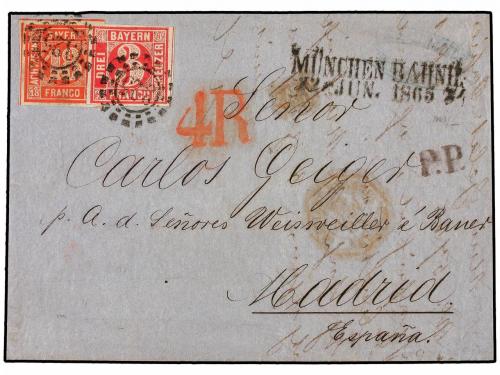 BAYERN
FRANCO
18
BAYERN
DREI
KREUZER
3
FRANCO
MÜNCHEN BAHNH.
12 JUN. 1865
4R
P.P.
Señor
Carlos Geiger
p. A. d. Señores Weisweiller é Bauer
Madrid
España.